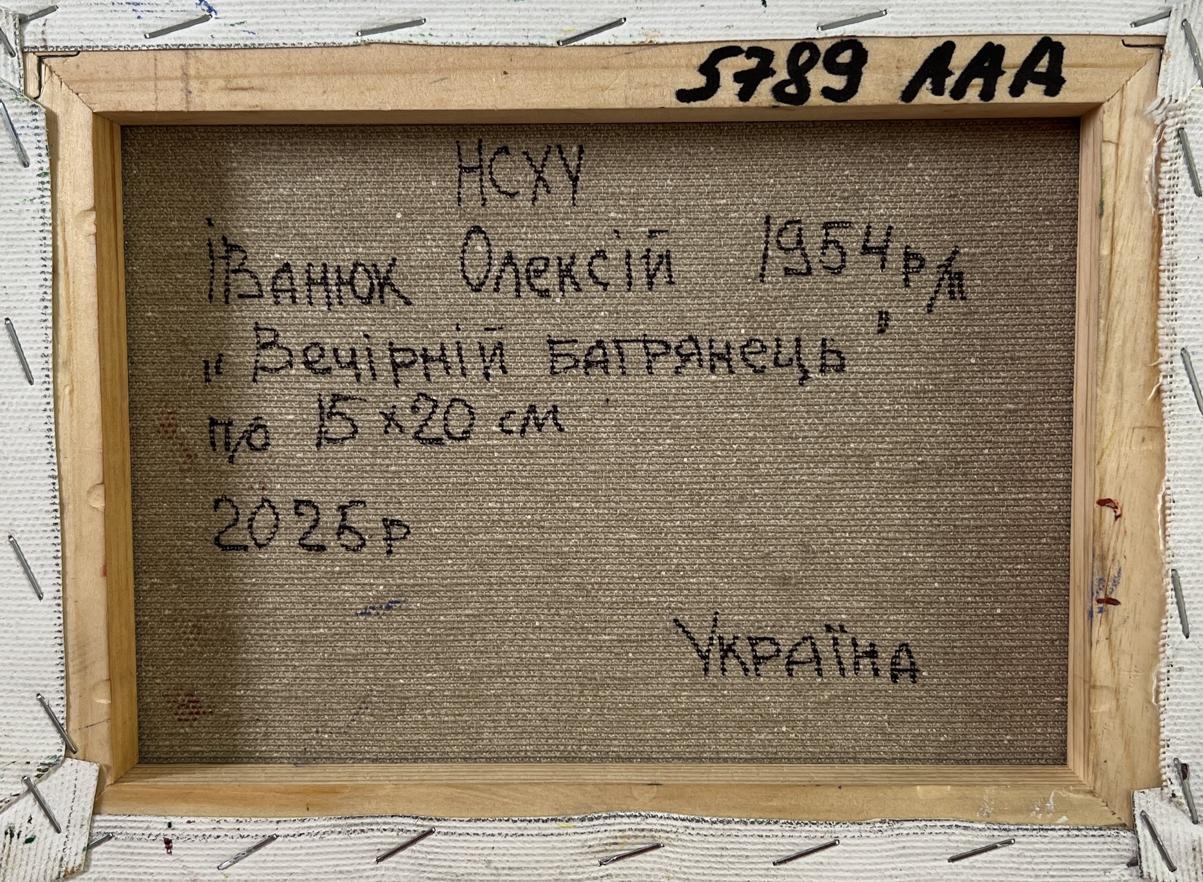 5789 ААА
НСХУ
Іванюк Олексій 1954 р/н
„Вечірній багрянець"
п/о 15х20 см
2025р
Україна